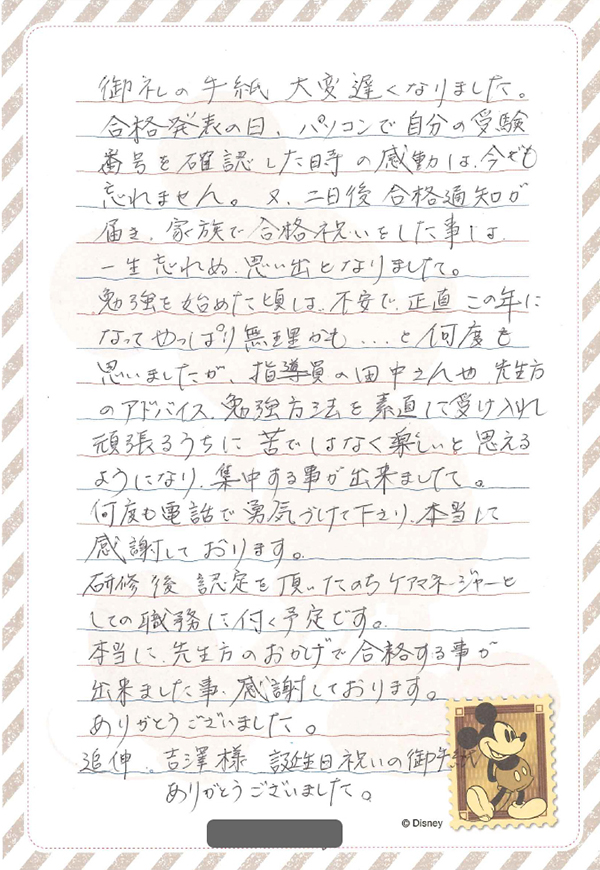 御礼の手紙 大変遅くなりました。
合格発表の日、パソコンで自分の受験
番号を確認した時の感動は、今でも
忘れません。又、二日後 合格通知が
届き、家族で合格祝いをした事は、
一生忘れぬ、思い出となりました。
勉強を始めた頃は、不安で、正直 この年に
なってやっぱり無理かも...と何度も
思いましたが、指導員の田中さんや、先生方
のアドバイス、勉強方法を素直に受け入れ
頑張るうちに 苦ではなく楽しいと思える
ようになり、集中する事が出来ました。
何度も電話で勇気づけて下さり、本当に
感謝しております。
研修後 認定を頂いたのちケアマネージャーと
しての職務に付く予定です。
本当に、先生方のおかげで合格する事が
出来ました事、感謝しております。
ありがとうございました。
追伸、吉澤様 誕生日祝いの御手紙
ありがとうございました。
© Disney